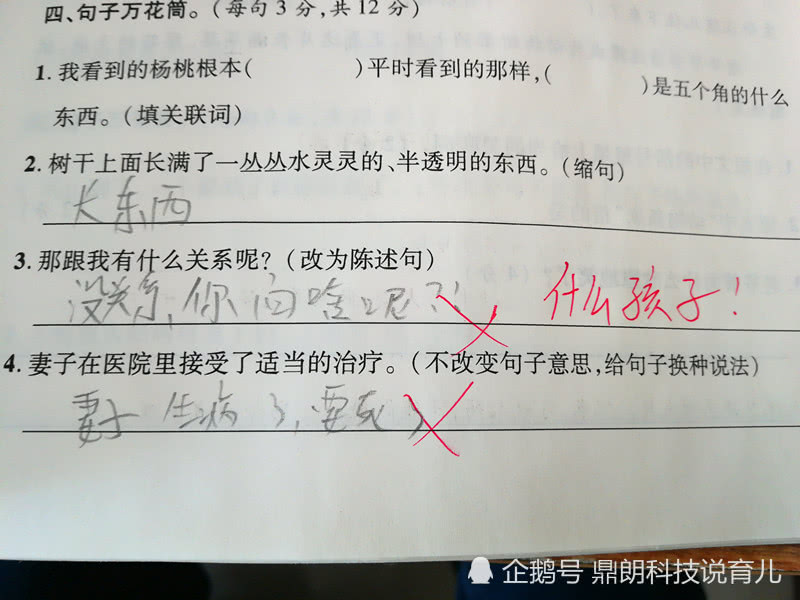 四、句子万花筒。(每句3分,共12分)
1.我看到的杨桃根本(　　)平时看到的那样,(　　)是五个角的什么
东西。(填关联词)
2.树干上面长满了一丛丛水灵灵的、半透明的东西。(缩句)
长东西
3.那跟我有什么关系呢?(改为陈述句)
没关系,你问啥呢?! 什么孩子!
4.妻子在医院里接受了适当的治疗。(不改变句子意思,给句子换种说法)
妻子生病了,要死了
企鹅号 鼎朗科技说育儿